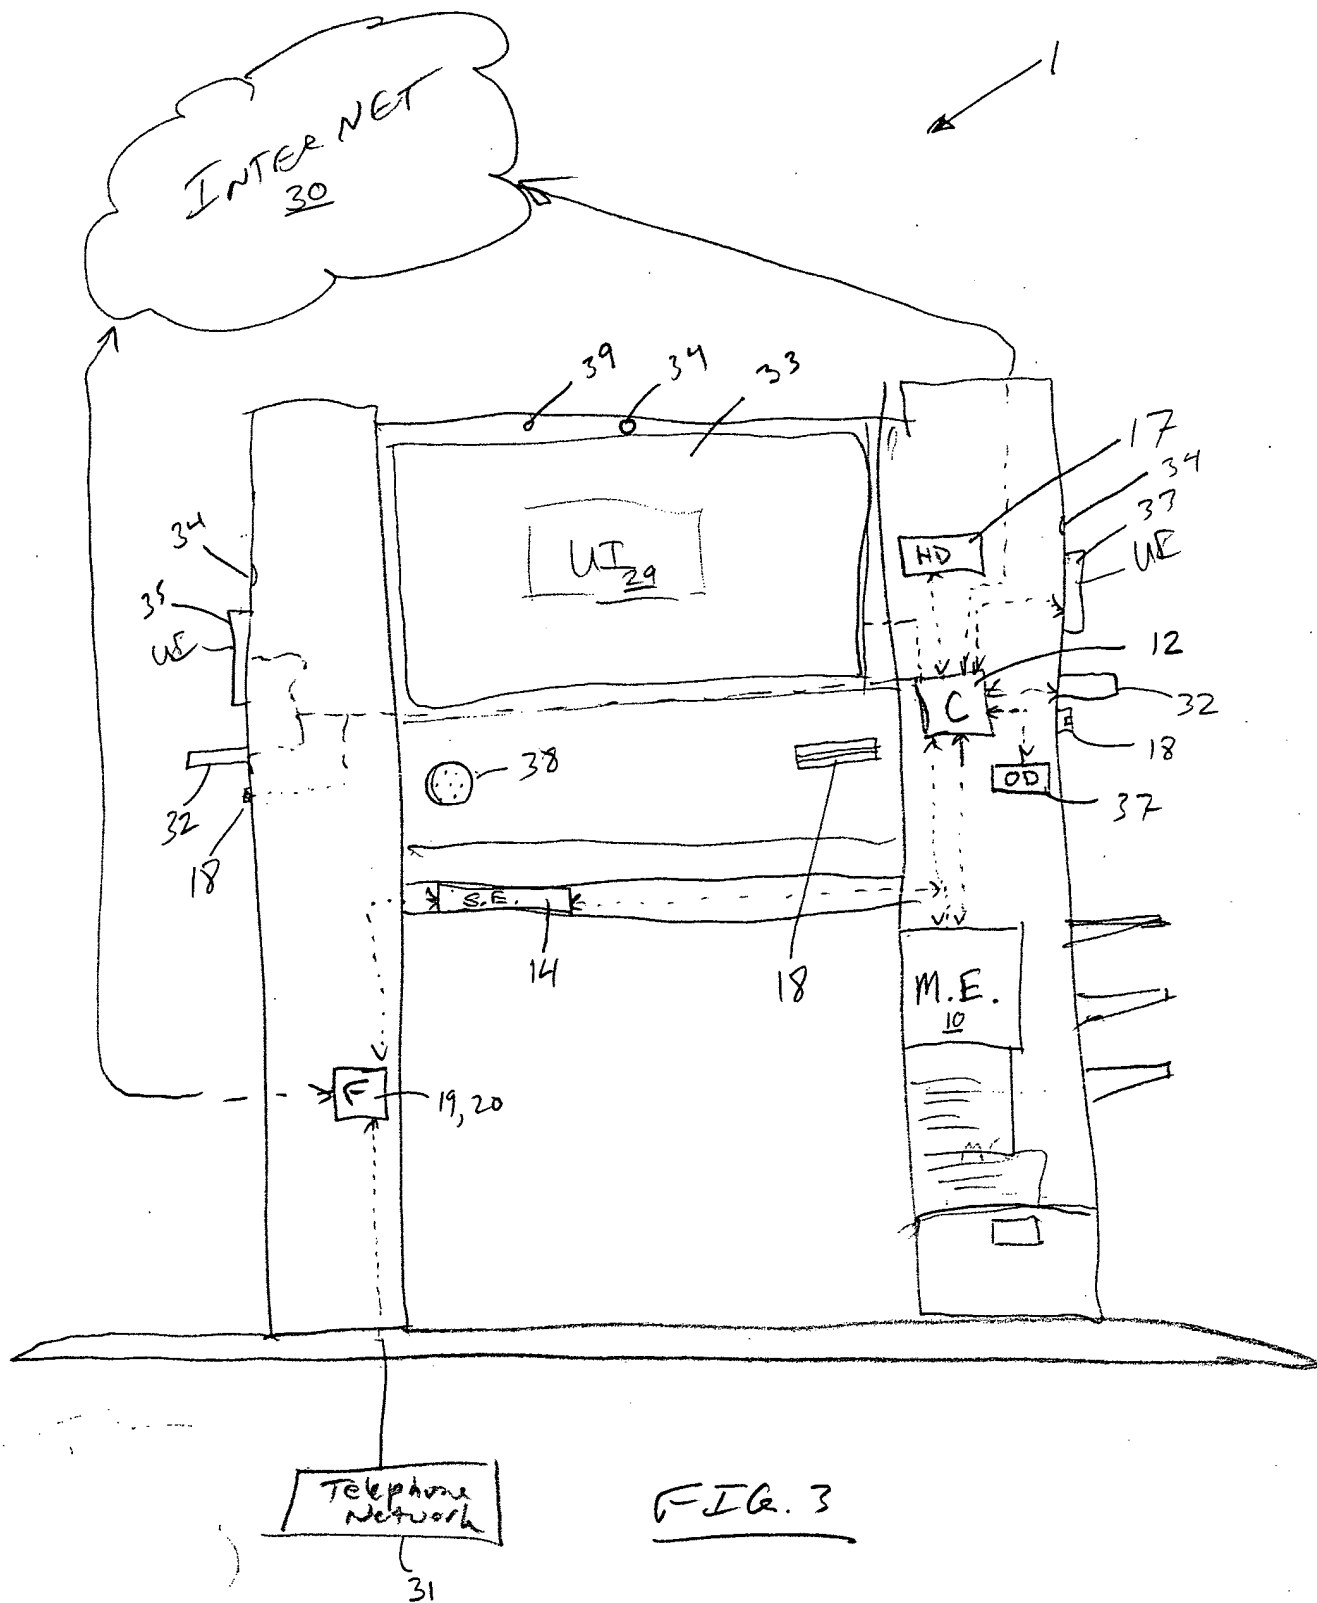 1
INTERNET
30
39
34
33
17
34
33
UI
34
35
UI
UI
29
HD
12
C
32
18
OD
37
32
18
38
18
S.E.
14
M.E.
10
F
19, 20
Telephone
Network
31
FIG. 3